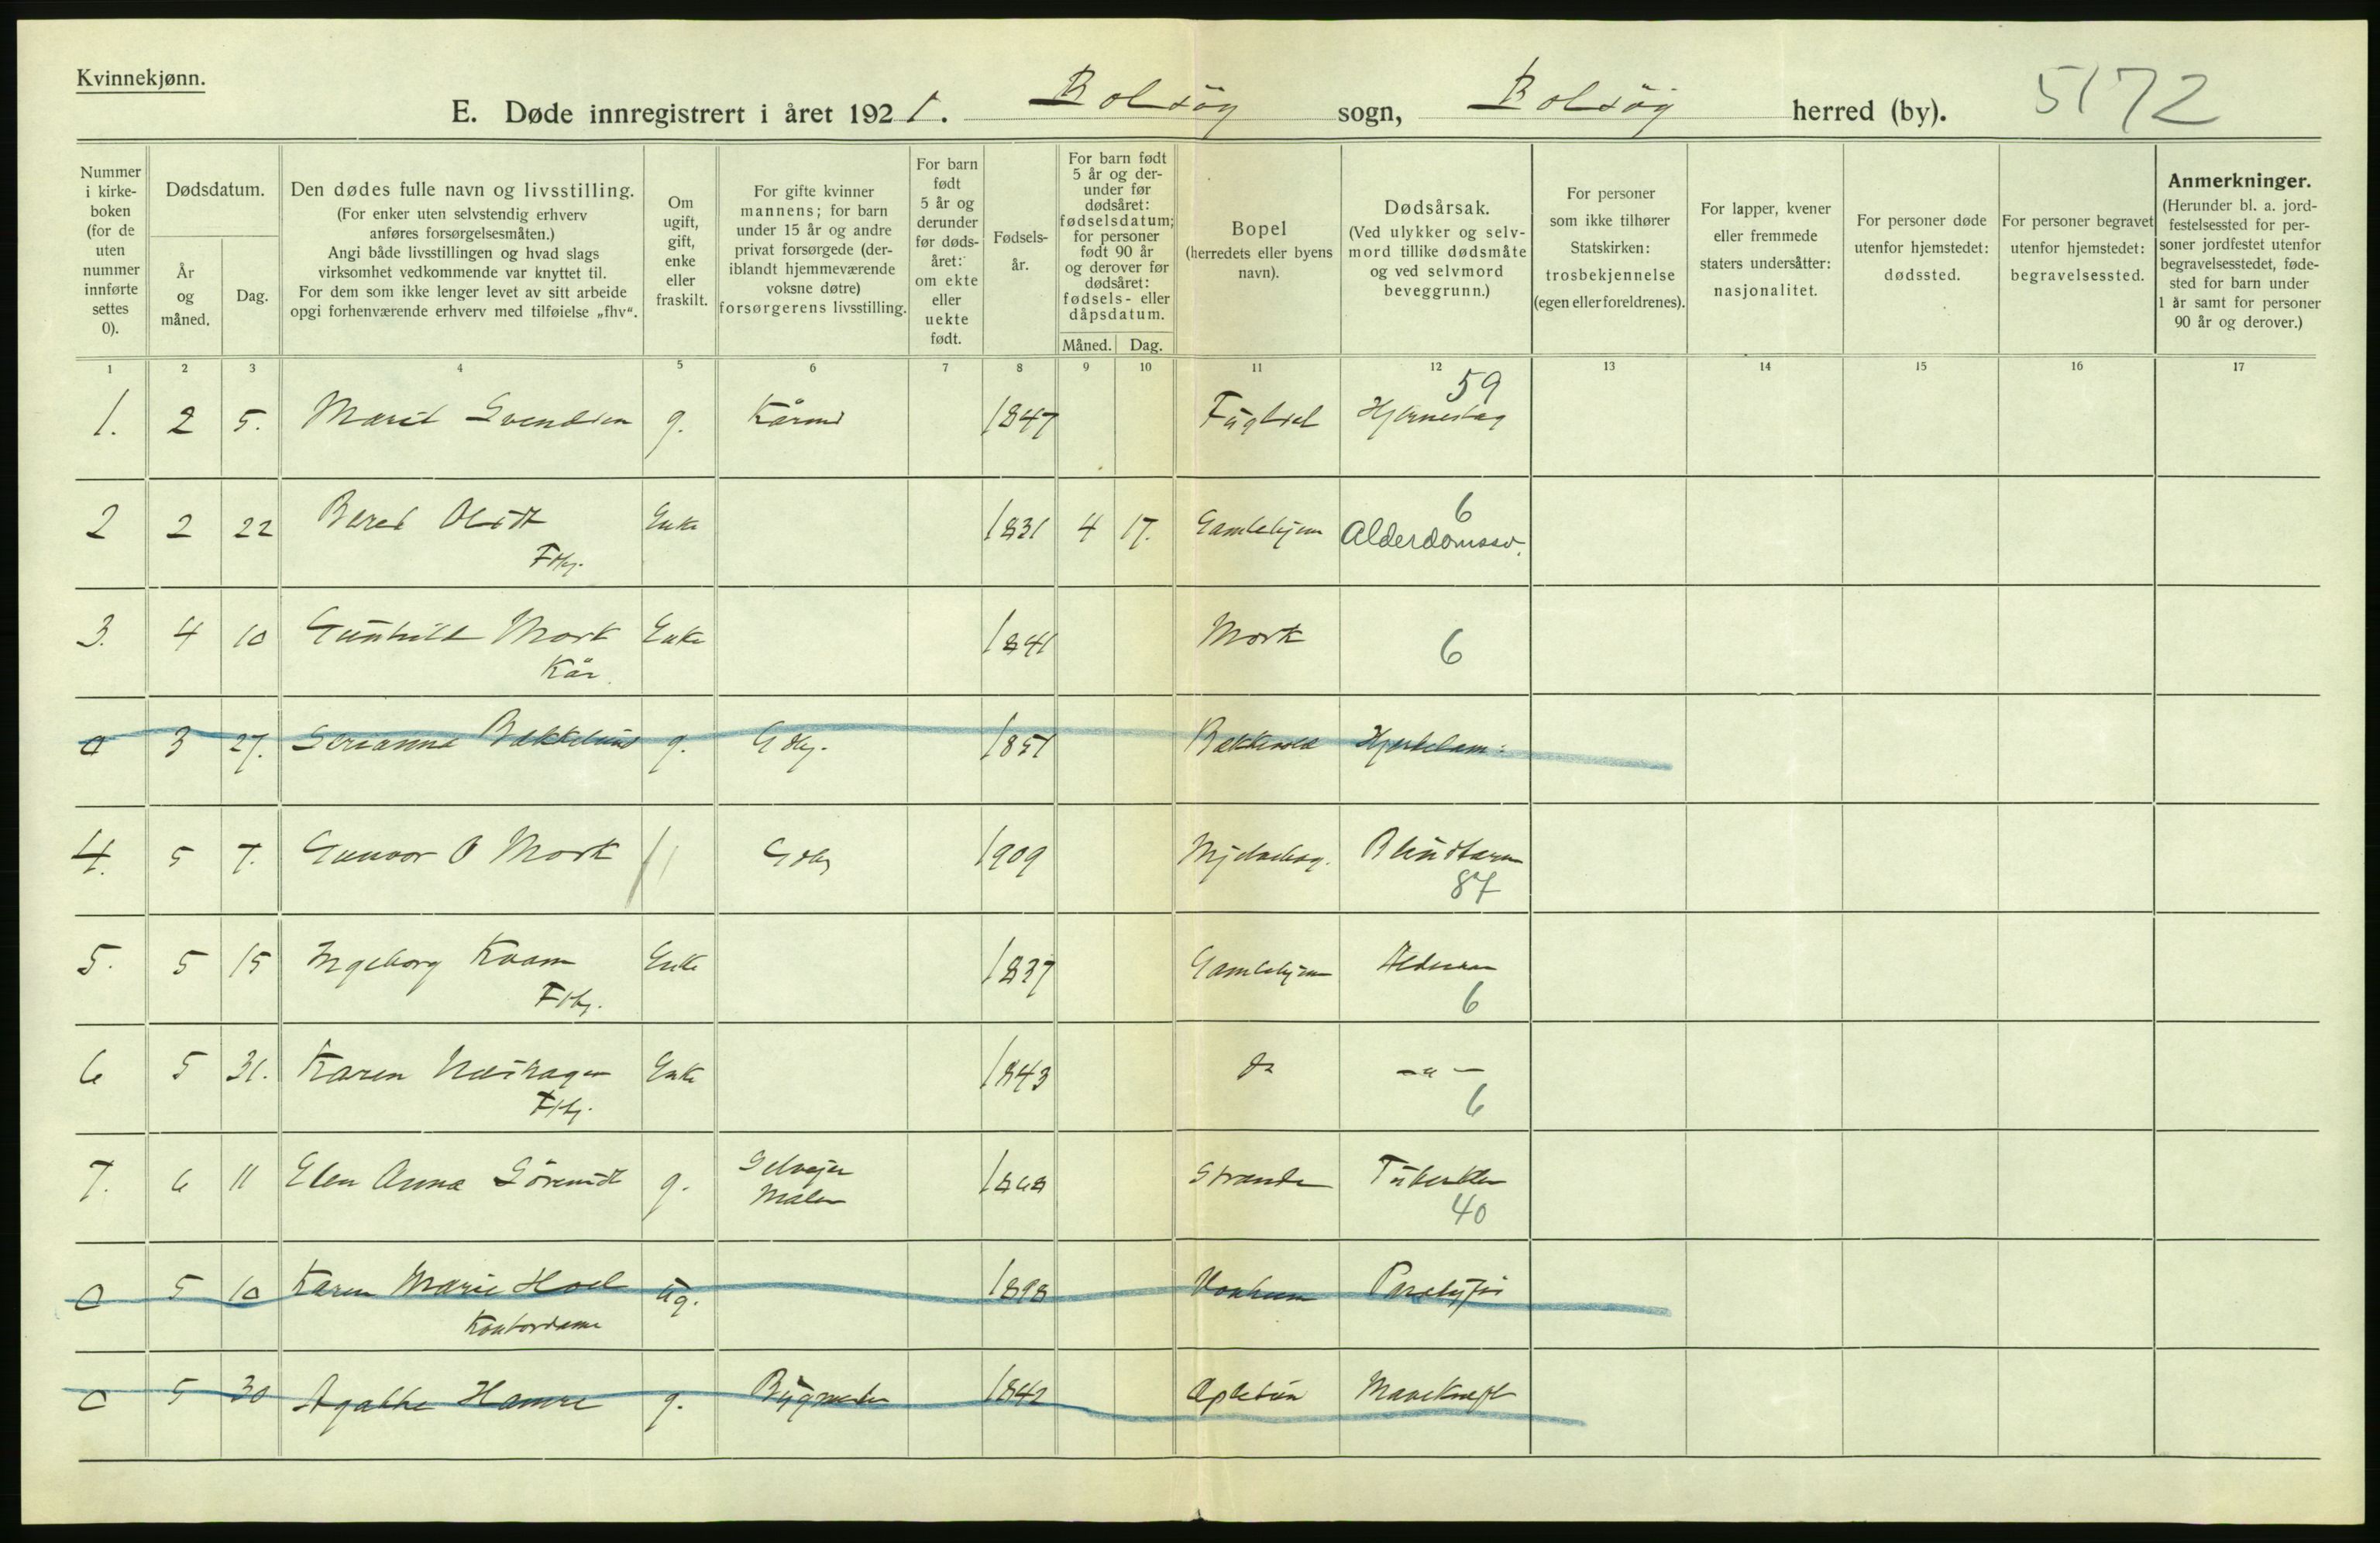 Kvinnekjønn.
E. Døde innregistrert i året 1921. Bolsøy sogn, Bolsøy herred (by). 5172
Nummer i kirkeboken (for de uten nummer innførte settes 0).
Dødsdatum.
År og måned.
Dag.
Den dødes fulle navn og livsstilling.
(For enker uten selvstendig erhverv
anføres forsørgelsesmåten.)
Angi både livsstillingen og hvad slags
virksomhet vedkommende var knyttet til.
For dem som ikke lenger levet av sitt arbeide
opgi forhenværende erhverv med tilføielse „fhv“.
Om ugift, gift, enke eller fraskilt.
For gifte kvinner
mannens; for barn
under 15 år og andre
privat forsørgede (deriblandt hjemmeværende
voksne døtre)
forsørgerens livsstilling.
For barn født 5 år og derunder før dødsåret: om ekte eller uekte født.
Fødselsår.
For barn født
5 år og derunder før
dødsåret:
fødselsdatum;
for personer
født 90 år
og derover før
dødsåret:
fødsels- eller
dåpsdatum.
Måned. Dag.
Bopel
(herredets eller byens
navn).
Dødsårsak.
(Ved ulykker og selvmord tillike dødsmåte
og ved selvmord
beveggrunn.)
For personer
som ikke tilhører
Statskirken:
trosbekjennelse
(egen eller foreldrenes).
For lapper, kvener
eller fremmede
staters undersåtter:
nasjonalitet.
For personer døde
utenfor hjemstedet:
dødssted.
For personer begravet
utenfor hjemstedet:
begravelsessted.
Anmerkninger.
(Herunder bl. a. jordfestelsessted for personer jordfestet utenfor
begravelsesstedet, fødested for barn under
1 år samt for personer
90 år og derover.)
1 2 3 4 5 6 7 8 9 10 11 12 13 14 15 16 17
1. 2 5. Marit Svendsen g. Kårm 1847 Fuglset Hjerneslag 59
2 2 22 Beret Enke 1831 4 17. Gamlehjem Alderdomssv. 6
3. 4 10 Gunhild Mork Enke 1841 Mork 6
Kår
0 3 27. Serianna Bakkelund g. Gbr. 1851 Hjertelam:
4. 5 7. Gunvor O Mork Gbr 1909 Blindtarm
87
5. 5 15 Ingeborg Kvam Enke 1837 Gamlehjem
6
6 5 31. Karen Enke 1843 do — " —
6
7. 6 11 Elen Anna g. Selvejer 1868 Strande Tuberkler
Maler 40
0 5 10 Karen Marie Hoel ug. 1898 Paralysi
Kontordame
0 5 30 Agathe Hamre g. Bygmester 1842 Apletun Mavekræft